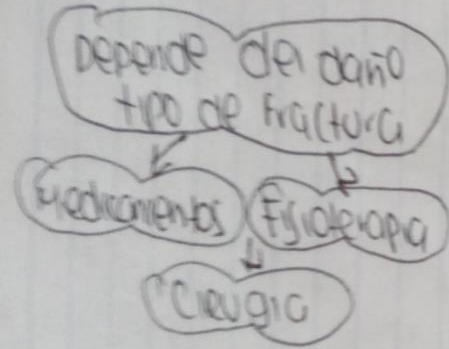 Depende del daño
tipo de fractura
Medicamentos Fisioterapia
Cirugia